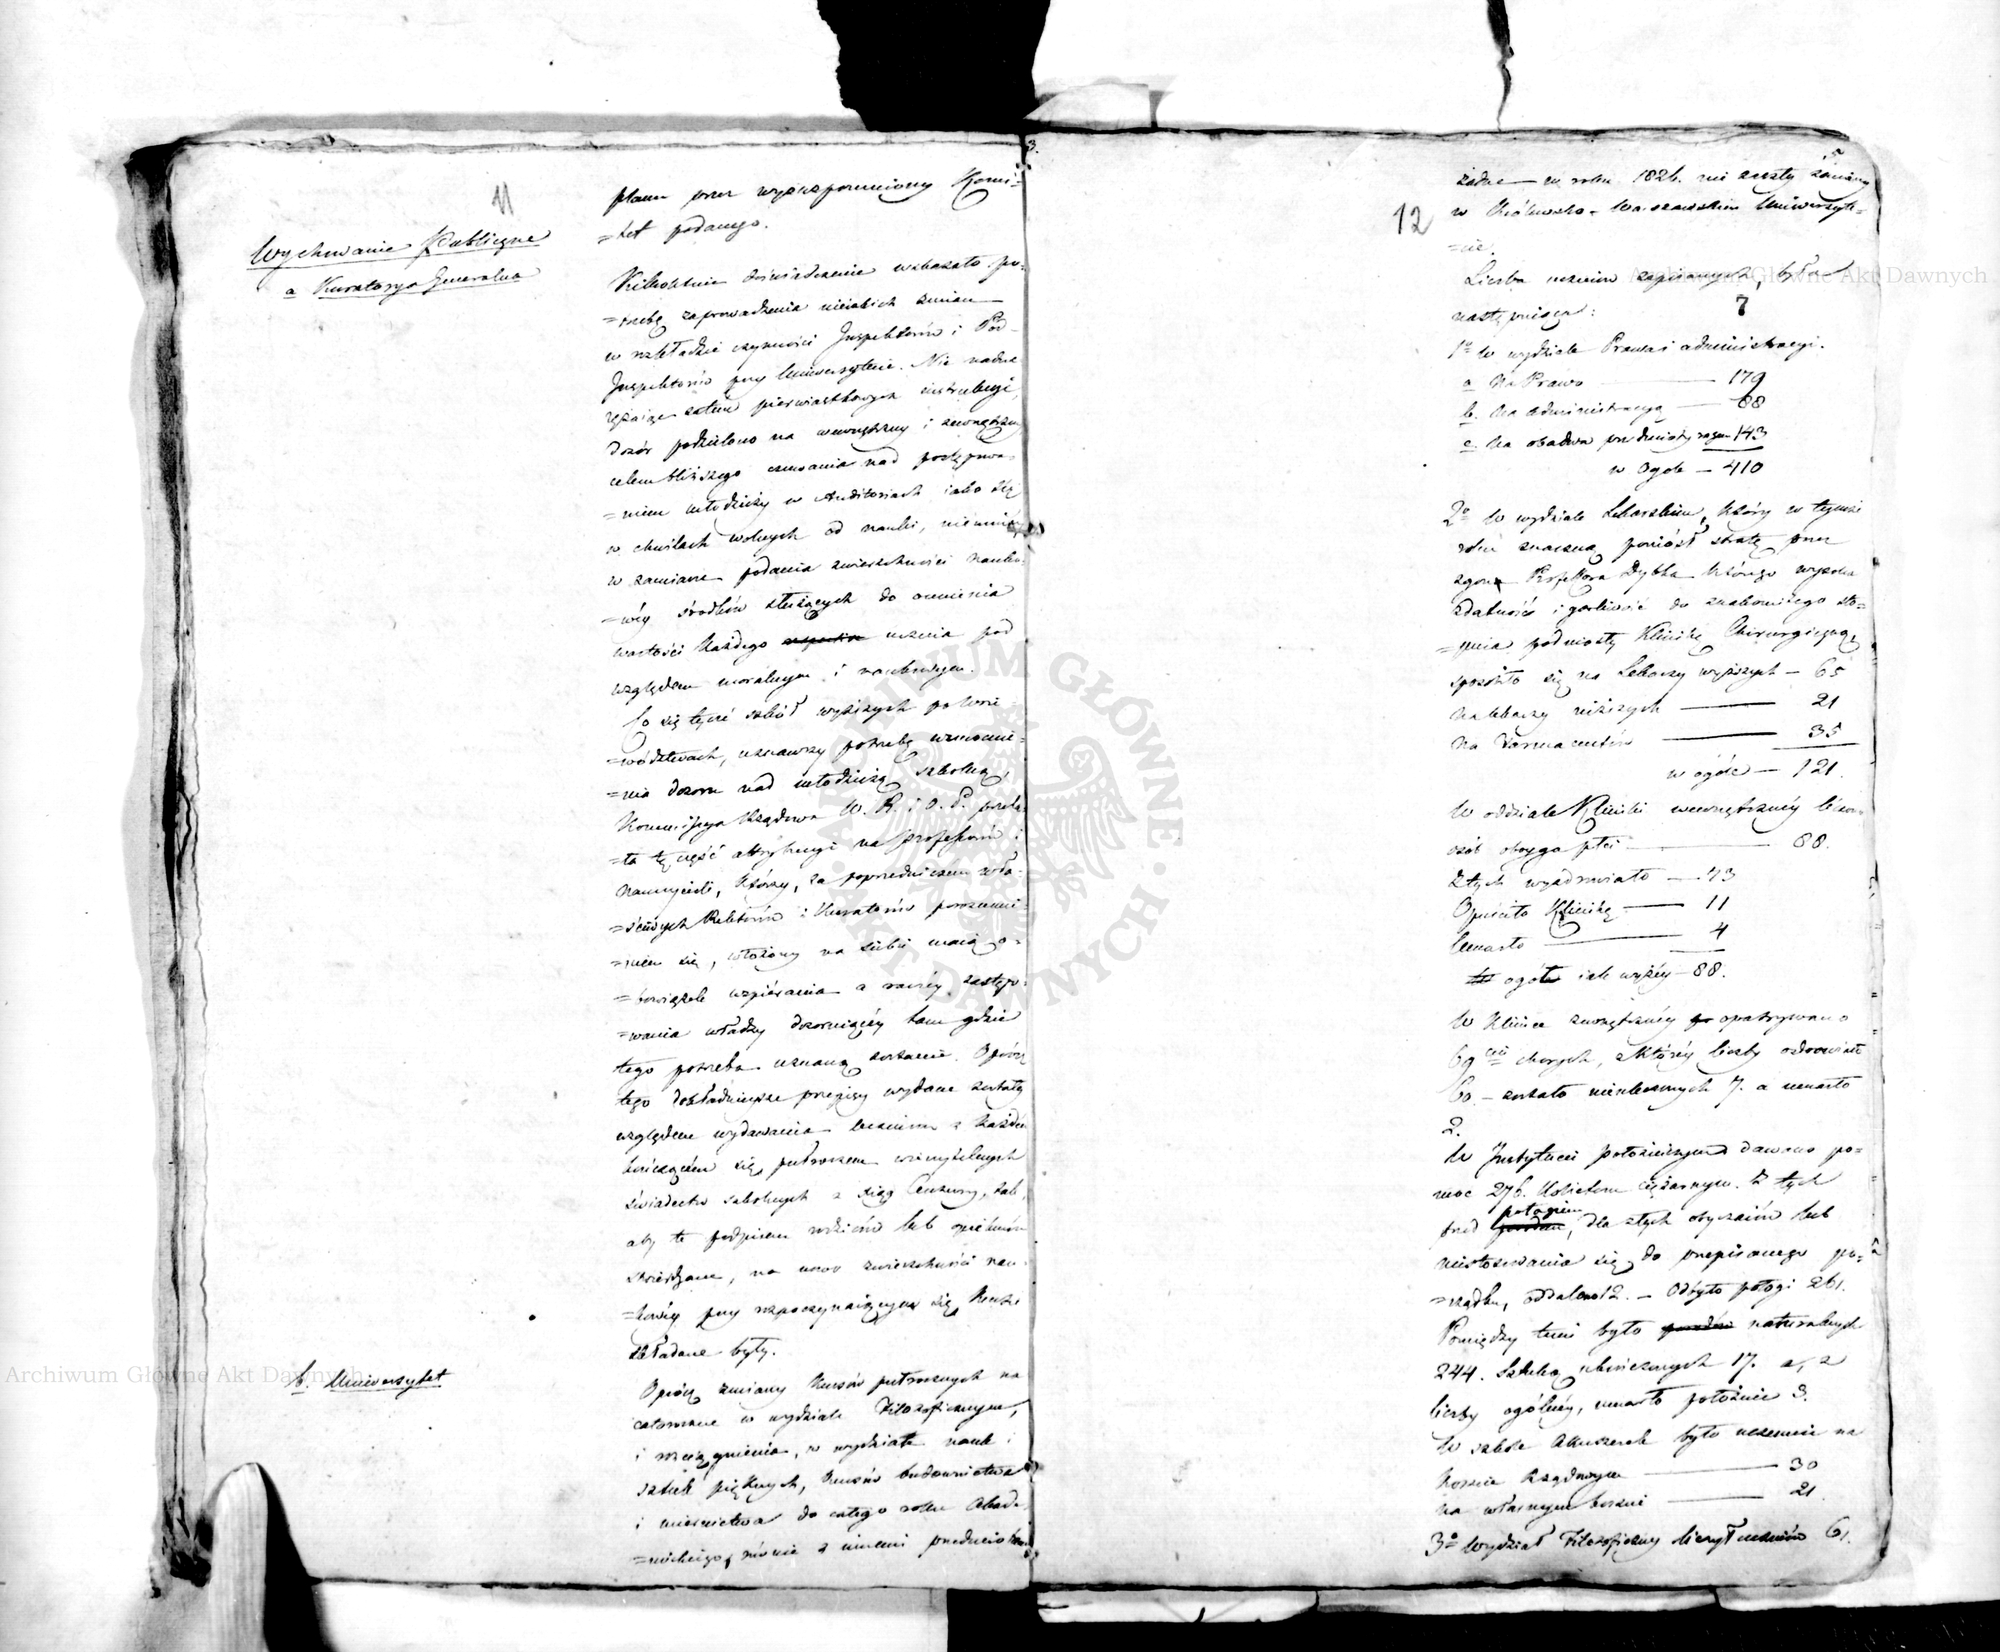 11
Wychowanie Publiczne
a Kuratorya Generalna
planu przez wyżwspomniony Komi-
=tet podanego.
Kilkoletnie doświadczenie wskazało po-
=trzebę zaprowadzenia niejakich zmian
w rozkładzie czynności Inspektorów i Pod-
Inspektorów przy Uniwersytecie. Nie
zatem pierwiastkowych instrukcyi,
dozór podzielono na wewnętrzny i zewnętrzny
celem bliższego czuwania nad postępowa-
=niem młodzieży w Auditoriach jako też
w chwilach wolnych od nauki, niemniéj
w zamiarze podania zwierzchności nauko-
=wéj środków służących do ocenienia
wartości każdego ucznia pod
względem moralnym i naukowym.
Co się tycze szkół wyższych po woie-
=wództwach, uznawszy potrzebę wzmocnie-
=nia dozoru nad młodzieżą szkolną,
Kommissya Rządowa W. R. i O. P. przela-
=ła tę część attrybucyi na professorów i
nauczycieli, którzy, za poprzedniczem wła-
=ściwych Rektorów i Kuratorów porozumie-
=niem się, włożony na siebie maią o-
=bowiązek wspierania a raczéj zastępo-
=wania władzy dozoruiącéj tam gdzie
tego potrzeba uznaną zostanie. Oprócz
tego dokładnieysze przepisy wydane zostały
względem wydawania uczniom z każdem
kończącem się półroczem
świadectw szkolnych z xiąg Cenzury, tak
aby te podpisem rodziców lub opiekunów
stwierdzone, na nowo zwierzchności nau-
=kowéj przy rozpoczynaiącym się kursie
składane były.
b. Uniwersytet
Oprócz zmiany kursów półrocznych na
całoroczne w wydziale Filozoficznym,
i rozciągnienia, w wydziale nauk i
sztuk pięknych, kursów budownictwa
i miernictwa do całego roku Akade-
=mickiego, równie z innemi przedmiotami
3.
5
12
żadne w roku 1826. nie zaszły zmiany
w Królewsko-Warszawskim Uniwersyte-
=cie.
Liczba uczniów zapisanych, była
następuiąca: 7
1º W wydziale Prawa i administracyi.
a Na Prawo — 179
b. Na administracyą — 88
c. Na obadwa przedmioty razem 143
w Ogole — 410
2º W wydziale Lekarskim, który w tymże
roku znaczną poniósł stratę przez
zgon Professora Dybka którego wysoka
zdatność i gorliwość do znakomitego sto-
=pnia podniosły Klinikę Chirurgiczną,
sposobiło się na Lekarzy wyższych — 65
Na lekarzy niższych — 21
Na Farmaceutów — 35
w ogóle — 121.
W oddziale Kliniki wewnętrznéj leczono
osób oboyga płci — 88.
Z tych wyzdrowiało — 73
Opuściło Klinikę — 11
Umarło — 4
ogół iak wyżéy — 88.
W Klinice zewnętrznéj opatrywano
69ciu chorych, z któréj liczby ozdrowiało
60 — zostało nieuleczonych 7. a umarło
2.
W Instytucie położniczym dawano po-
moc 276. Kobietom ciężarnym. Z tych
przed połogiem, dla złych obyczaiów lub
niestosowania się do przepisanego po-
=rządku, oddalono 12. — Odbyto połogi 261.
Pomiędzy temi było naturalnych
244. Sztuką ukończonych 17. a, z
liczby ogólnéj, umarło położnic 3.
W szkole Akuszerek było uczennic na
koszcie Rządowym — 30
na własnym koszcie — 21
3º Wydział Filozoficzny liczył uczniów 61.
Archiwum Główne Akt Dawnych
Archiwum Główne Akt Dawnych
ARCHIWUM GŁÓWNE AKT DAWNYCH